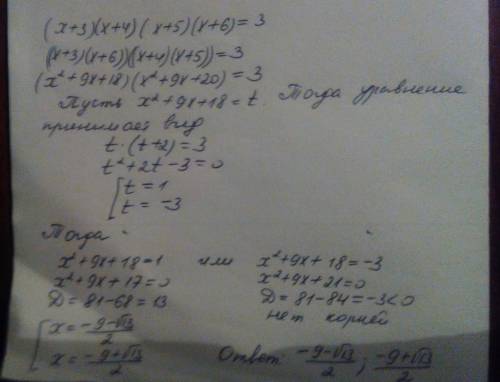 (x+3)(x+4)(x+5)(x+6)=3
((x+3)(x+6))((x+4)(x+5))=3
(x²+9x+18)(x²+9x+20)=3
Пусть x²+9x+18=t. Тогда уравнение
принимает вид
t·(t+2)=3
t²+2t-3=0
[t=1
t=-3
Тогда
x²+9x+18=1 или x²+9x+18=-3
x²+9x+17=0 x²+9x+21=0
D=81-68=13 D=81-84=-3<0
нет корней
[x=(-9-√13)/2
x=(-9+√13)/2 Ответ: (-9-√13)/2; (-9+√13)/2